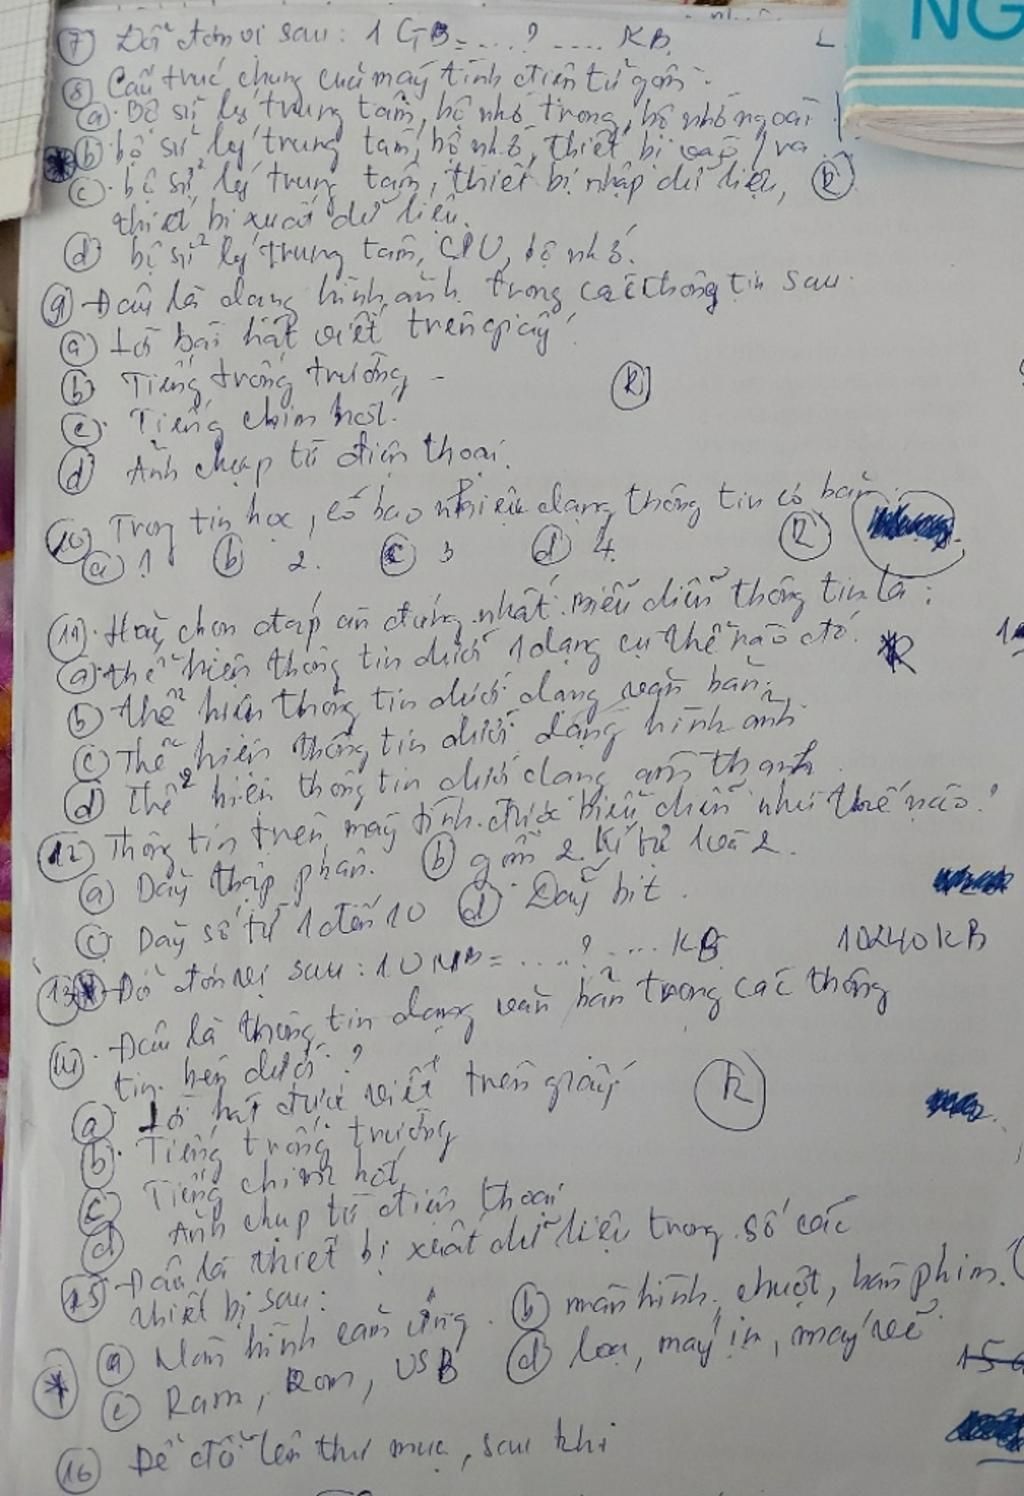 NG
7 Đổi đơn vị sau: 1 GB = ....?.... KB
8 Cấu trúc chung của máy tính điện tử gồm:
a. Bộ sử lý trung tâm, bộ nhớ trong, bộ nhớ ngoài
b bộ sử lý trung tâm, bộ nhớ, thiết bị vào/ra
c. bộ sử lý trung tâm, thiết bị nhập dữ liệu, R
thiết bị xuất dữ liệu.
d bộ sử lý trung tâm, CPU, bộ nhớ.
9 Đâu là dạng hình ảnh trong các thông tin sau
a Lời bài hát viết trên giấy
b Tiếng trống trường R
c. Tiếng chim hót.
d Ảnh chụp từ điện thoại.
10 Trong tin học, có bao nhiêu dạng thông tin cơ bản.
a 1 b 2. c 3 d 4 R
11. Hãy chọn đáp án đúng nhất. Biểu diễn thông tin là:
a. thể hiện thông tin dưới 1 dạng cụ thể nào đó. R
b thể hiện thông tin dưới dạng văn bản
c Thể hiện thông tin dưới dạng hình ảnh
d thể hiện thông tin dưới dạng âm thanh
12 Thông tin trên máy tính được biểu diễn như thế nào?
a Dãy thập phân. b gồm 2 kí tự 1 và 2.
c Dãy số từ 1 đến 10 d. Dãy bit.
13 Đổi đơn vị sau: 10 MB = ....?.... KB 10240 KB
14. Đâu là thông tin dạng văn bản trong các thông
tin bên dưới?
a. Lời hát được viết trên giấy R
b. Tiếng trống trường
c Tiếng chim hót
d Ảnh chụp từ điện thoại
15 Đâu là thiết bị xuất dữ liệu trong số các
thiết bị sau:
a Màn hình cảm ứng. b màn hình, chuột, bàn phím.
c Ram, Rom, USB d loa, máy in, máy vẽ
16 Để đổi tên thư mục, sau khi